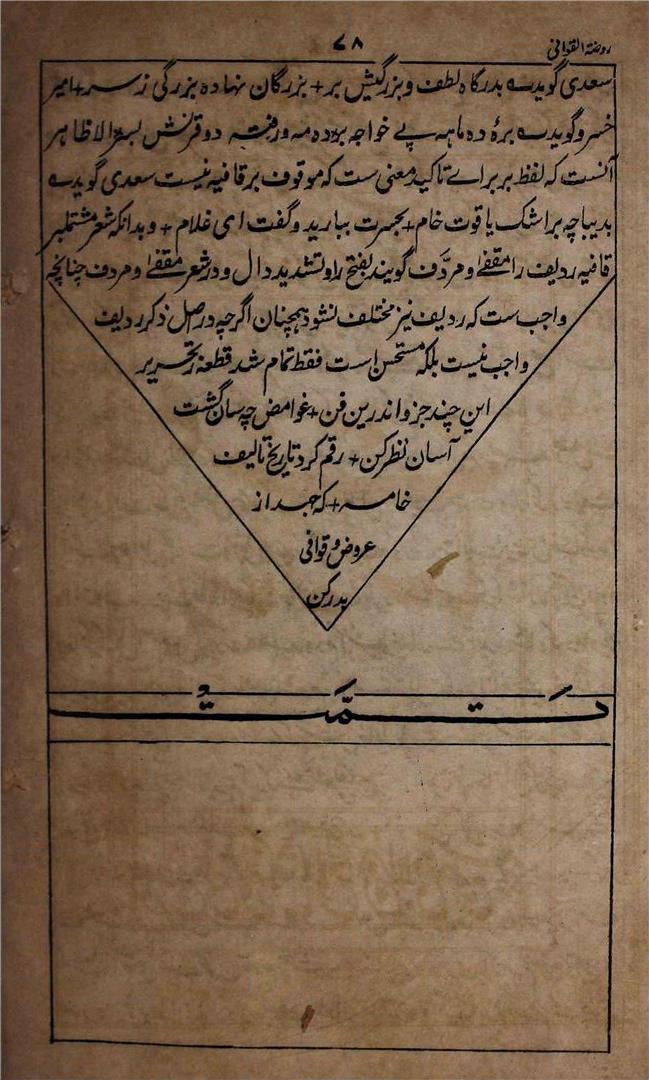 روضة القوافی
۷۸
سعدی گوید ؎ بدرگاه لطف و بزرگیش بر + بزرگان نهاده بزرگی ز سر + امیر
خسرو گوید ؎ برهٔ ده ماهه پے خواجه بوده مه و رفته دو قرنش بسر الا ظاهر
آنست که لفظ بر براے تاکید معنی ست که موقوف بر قافیه نیست سعدی گوید ؎
بدیباچه بر اشک یاقوت خام + بحسرت ببارید و گفت ای غلام + و بدانکه شعر مشتملبر
قافیه ردیف را مقفیٰ و مردَّف گویند بفتح را و تشدید دال و در شعر مقفیٰ و مردف چنانچه
واجب ست که ردیف نیز مختلف نشود همچنان اگرچه در اصل ذکر ردیف
واجب نیست بلکه مستحسن است فقط تمام شد قطعه ز تحریر
این چند جزو اندرین فن + غوامض چسان گشت
آسان نظر کن + رقم کرد تاریخ تالیف
خامه + که جهد از
عروض و قوافی
بدر کن
تَمَّتْ